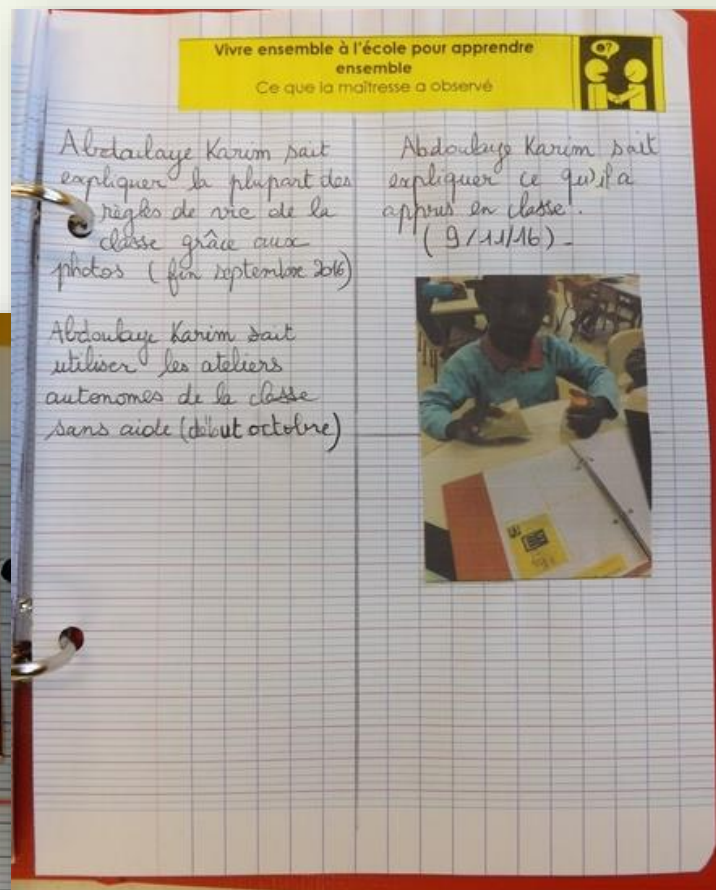 Vivre ensemble à l'école pour apprendre
ensemble
Ce que la maîtresse a observé
Abdoulaye Karim sait
expliquer la plupart des
règles de vie de la
classe grâce aux
photos (fin septembre 2016)
Abdoulaye Karim sait
utiliser les ateliers
autonomes de la classe
sans aide (début octobre)
Abdoulaye Karim sait
expliquer ce qu'il a
appris en classe.
(9/11/16).